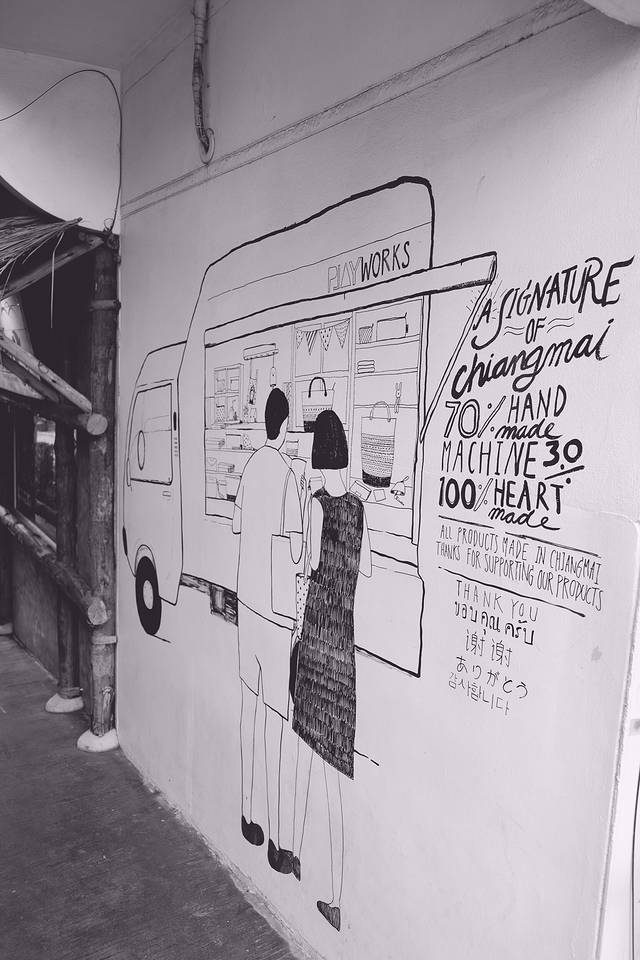 PLAYWORKS
A SIGNATURE
OF
chiangmai
70% HAND
made
MACHINE 30%
100% HEART
made
ALL PRODUCTS MADE IN CHIANGMAI
THANKS FOR SUPPORTING OUR PRODUCTS
THANK YOU
ขอบคุณครับ
谢谢
ありがとう
감사합니다